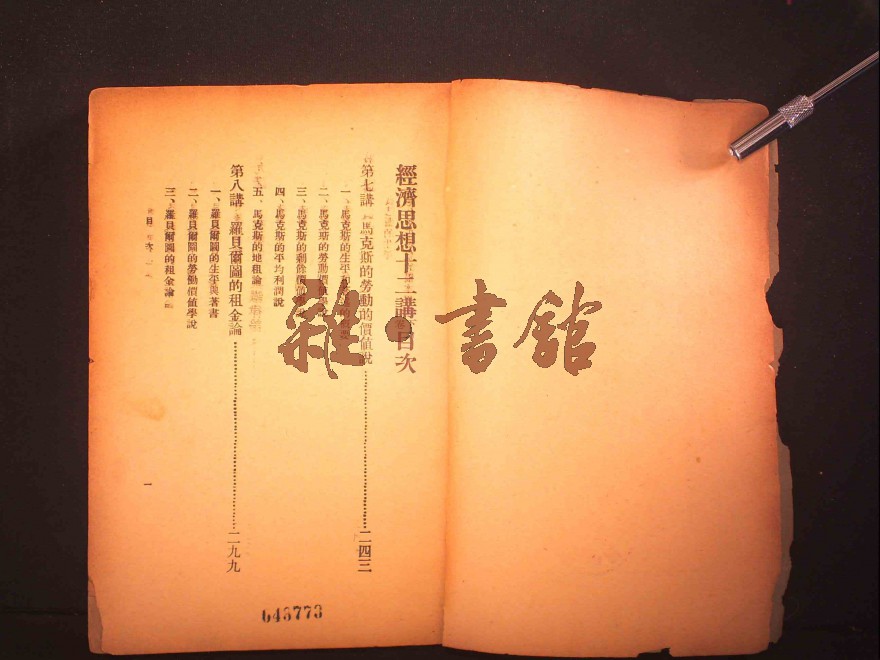 經濟思想十二講 目次
第七講 馬克斯的勞動的價值說 二四三
一、馬克斯的生平
二、馬克斯的勞動價值
三、馬克斯的剩餘價值
四、馬克斯的平均利潤說
五、馬克斯的地租論
第八講 羅貝爾圖的租金論 二九九
一、羅貝爾圖的生平與著書
二、羅貝爾圖的勞働價值學說
三、羅貝爾圖的租金論
目 次
一
643773
雜·書館